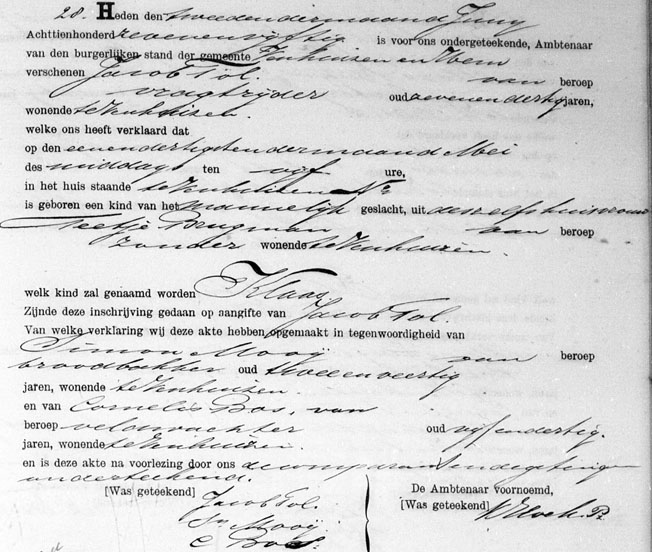 28. Heden den tweeden der maand Juny
Achttienhonderd zevenenvyftig is voor ons ondergeteekende, Ambtenaar
van den burgerlijken stand der gemeente Venhuizen en Hem
verschenen Jacob Tol. van beroep
vragtrijder oud zevenendertig jaren,
wonende te Venhuizen.
welke ons heeft verklaard dat
op den eenendertigsten der maand Mei
des middags ten vijf ure,
in het huis staande te Venhuizen No
is geboren een kind van het mannelijk geslacht, uit deszelfs huisvrouw
Neeltje Brugman van beroep
zonder wonende te Venhuizen.
welk kind zal genaamd worden Klaas
Zijnde deze inschrijving gedaan op aangifte van Jacob Tol.
Van welke verklaring wij deze akte hebben opgemaakt in tegenwoordigheid van
Simon Mooy van beroep
broodbakker oud tweeenveertig
jaren, wonende te Venhuizen.
en van Cornelis Bos, van
beroep veldwachter oud vyfendertig.
jaren, wonende te Venhuizen.
en is deze akte na voorlezing door ons de comparant en de getuigen
onderteekend.
[Was geteekend] De Ambtenaar voornoemd,
Jacob Tol. [Was geteekend]
Sn Mooy
C Bos.